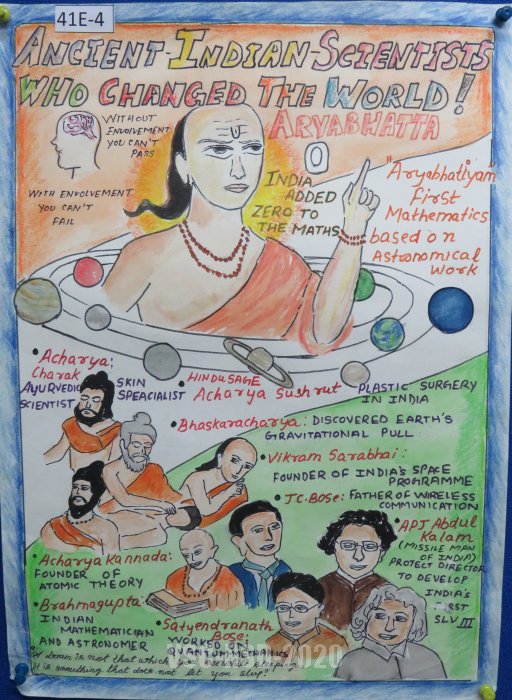 41E-4
ANCIENT INDIAN SCIENTISTS
WHO CHANGED THE WORLD!
ARYABHATTA
WITHOUT
ENVOLVEMENT
YOU CAN'T
PASS
WITH ENVOLVEMENT
YOU CAN'T
FAIL
0
INDIA
ADDED
ZERO TO
THE MATHS
"Aryabhatiyam
First
Mathematics
based on
Astronomical
Work
• Acharya:
Charak
AYURVEDIC
SCIENTIST
SKIN
SPEACIALIST
• HINDU SAGE
Acharya Sushrut
PLASTIC SURGERY
IN INDIA
• Bhaskaracharya: DISCOVERED EARTH'S
GRAVITATIONAL PULL
• Vikram Sarabhai:
FOUNDER OF INDIA'S SPACE
PROGRAMME
• J.C. BOSE: FATHER OF WIRELESS
COMMUNICATION
• APJ Abdul
Kalam
(MISSILE MAN
OF INDIA)
PROJECT DIRECTOR
TO DEVELOP
INDIA'S
SLV III
• Acharya Kannada:
FOUNDER OF
ATOMIC THEORY
• Brahmagupta:
INDIAN
MATHEMATICIAN
AND ASTRONOMER
• Satyendranath
Bose:
WORKED ON
QUANTUM MECHANICS
dream is not that which you
It is something that does not let you sleep"
2020